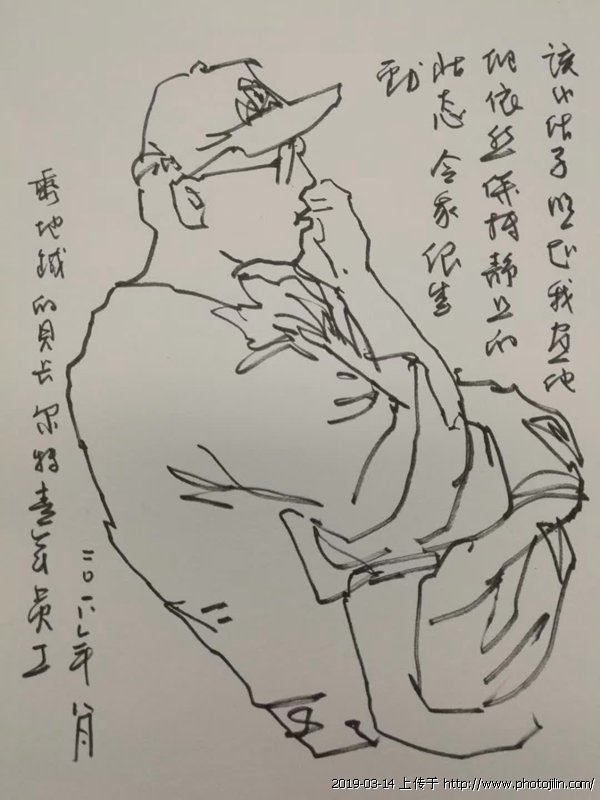 该小伙子明知我画他
但依然保持静止的
状态 令我很
动
乘地铁的贝卡尔特青年员工
二〇一八年八月
2019-03-14 上传于 http://www.photojilin.com/